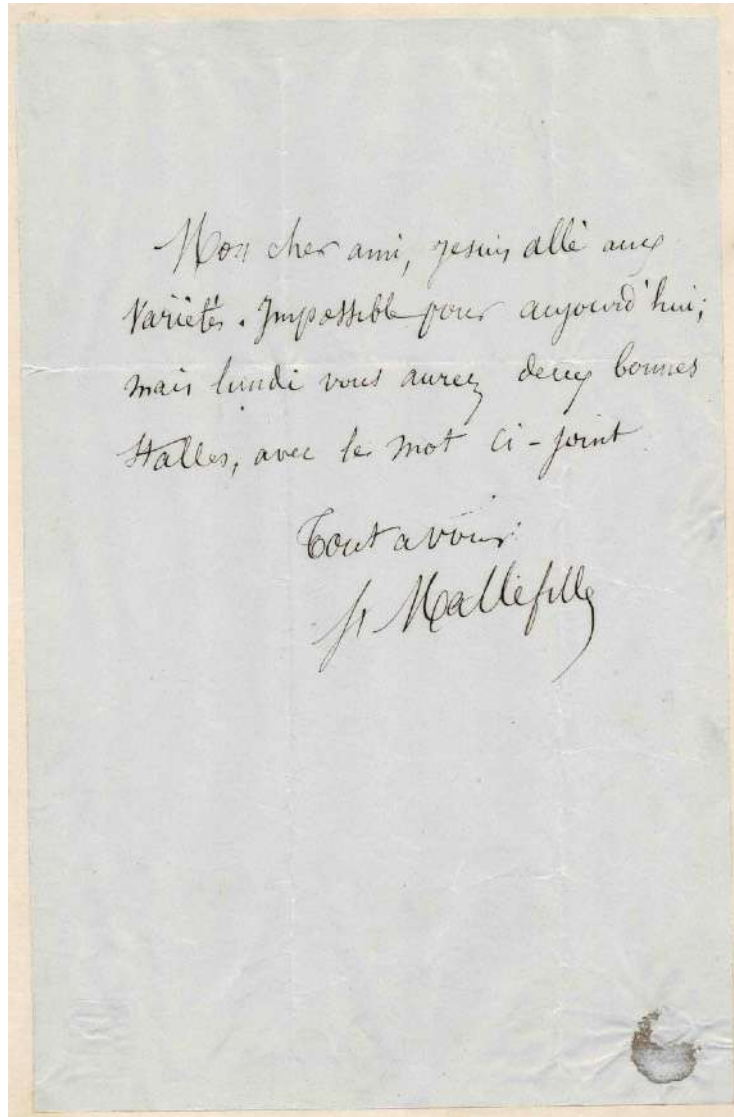 Mon cher ami, je suis allé aux
Variétés. Impossible pour aujourd'hui;
mais lundi vous aurez deux bonnes
stalles, avec le mot ci-joint
Tout a vous
Mallefille